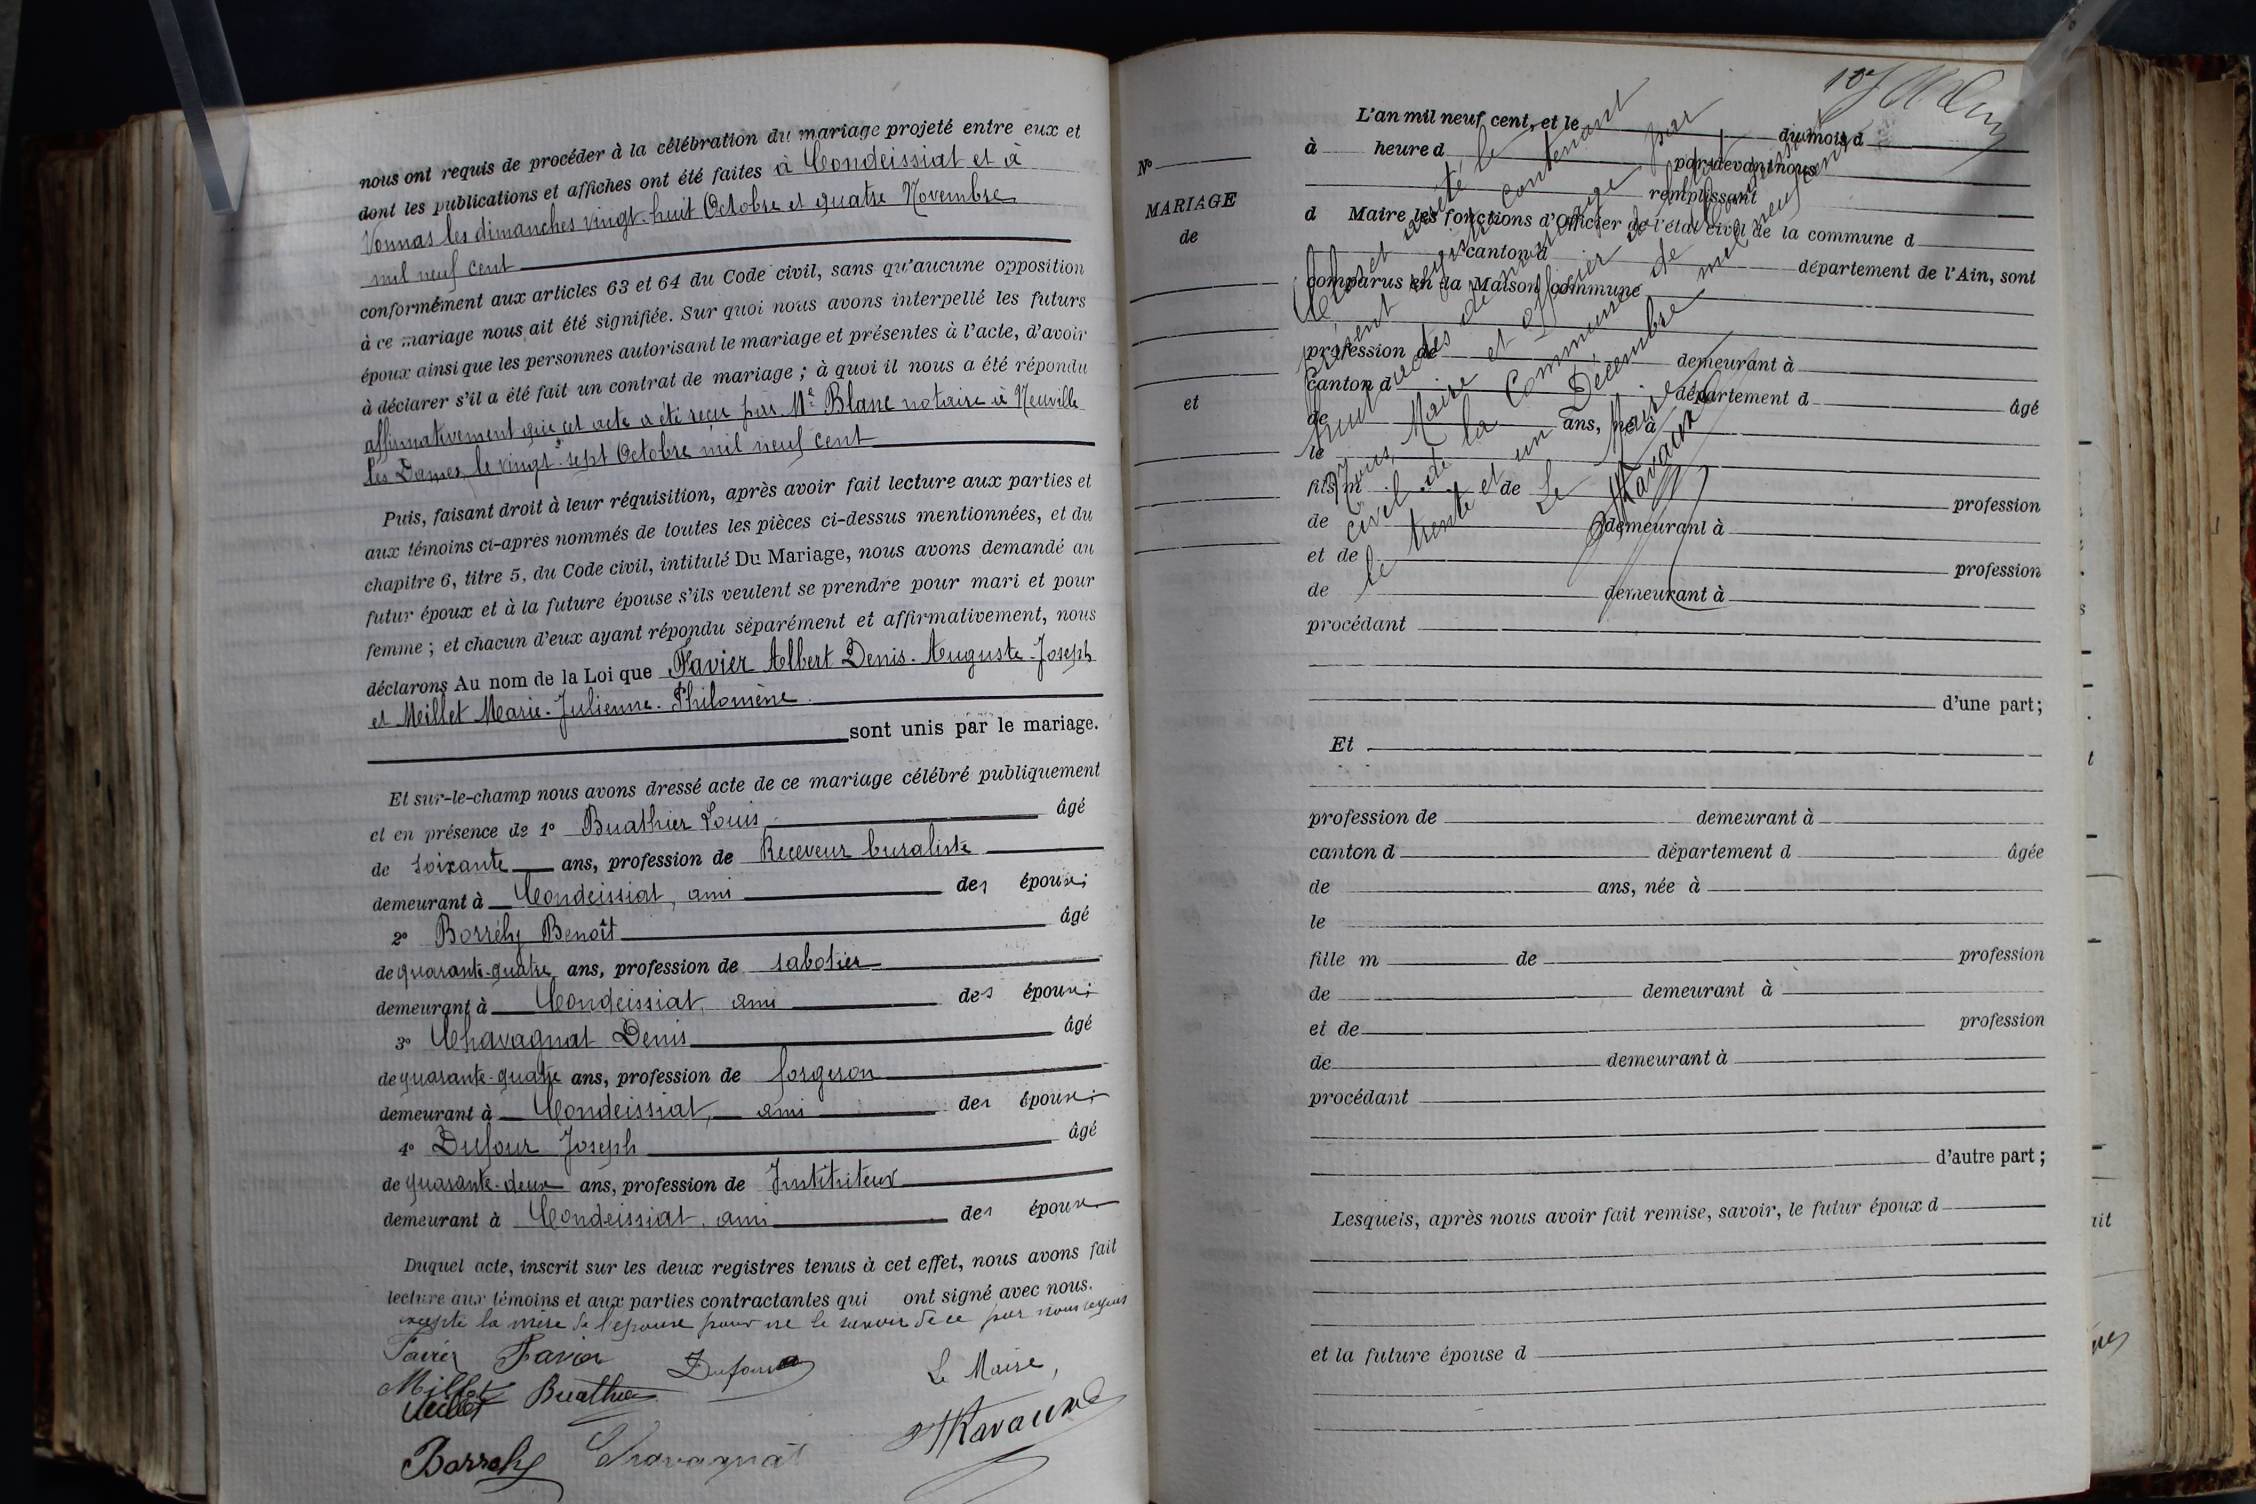 nous ont requis de procéder à la célébration du mariage projeté entre eux et
dont les publications et affiches ont été faites à Condeissiat et à
Vonnas les dimanches vingt-huit Octobre et quatre Novembre
mil neuf cent
conformément aux articles 63 et 64 du Code civil, sans qu'aucune opposition
à ce mariage nous ait été signifiée. Sur quoi nous avons interpellé les futurs
époux ainsi que les personnes autorisant le mariage et présentes à l'acte, d'avoir
à déclarer s'il a été fait un contrat de mariage ; à quoi il nous a été répondu
affirmativement que cet acte a été reçu par Me Blanc notaire à Neuville
les Dames, le vingt-sept Octobre mil neuf cent
Puis, faisant droit à leur réquisition, après avoir fait lecture aux parties et
aux témoins ci-après nommés de toutes les pièces ci-dessus mentionnées, et du
chapitre 6, titre 5, du Code civil, intitulé Du Mariage, nous avons demandé au
futur époux et à la future épouse s'ils veulent se prendre pour mari et pour
femme ; et chacun d'eux ayant répondu séparément et affirmativement, nous
déclarons Au nom de la Loi que Favier Albert Denis-Auguste-Joseph
et Meillet Marie-Julienne-Philomène
sont unis par le mariage.
Et sur-le-champ nous avons dressé acte de ce mariage célébré publiquement
et en présence de 1° Buathier Louis âgé
de soixante ans, profession de Receveur buraliste
demeurant à Condeissiat, ami des époux;
2° Borrély Benoît âgé
de quarante-quatre ans, profession de sabotier
demeurant à Condeissiat, ami des époux;
3° Chavagnat Denis âgé
de quarante-quatre ans, profession de forgeron
demeurant à Condeissiat, ami des époux;
4° Dufour Joseph âgé
de quarante-deux ans, profession de Instituteur
demeurant à Condeissiat, ami des époux
Duquel acte, inscrit sur les deux registres tenus à cet effet, nous avons fait
lecture aux témoins et aux parties contractantes qui ont signé avec nous.
excepté la mère de l'épouse pour ne le savoir de ce par nous requis
Favier Favier Dufour Le Maire,
Millet Buathier
Meillet
Borrely Chavagnat
L'an mil neuf cent, et le du mois d
à heure d par devant nous
remplissant
d Maire les fonctions d'Officier de l'état civil de la commune d
canton d département de l'Ain, sont
comparus en la Maison commune
profession de demeurant à
canton d département d âgé
de ans, né à
le
fils m de profession
de demeurant à
et de profession
de demeurant à
procédant
d'une part;
Et
profession de demeurant à
canton d département d âgée
de ans, née à
le
fille m de profession
de demeurant à
et de profession
de demeurant à
procédant
d'autre part ;
Lesquels, après nous avoir fait remise, savoir, le futur époux d
et la future épouse d
N°
MARIAGE
de
et
Clos et arrêté le
présent registre contenant
huit actes de mariage par
Nous, Maire et officier de l'état
civil de la Commune de Condeissiat
le trente et un Décembre mil neuf cent
Le Maire